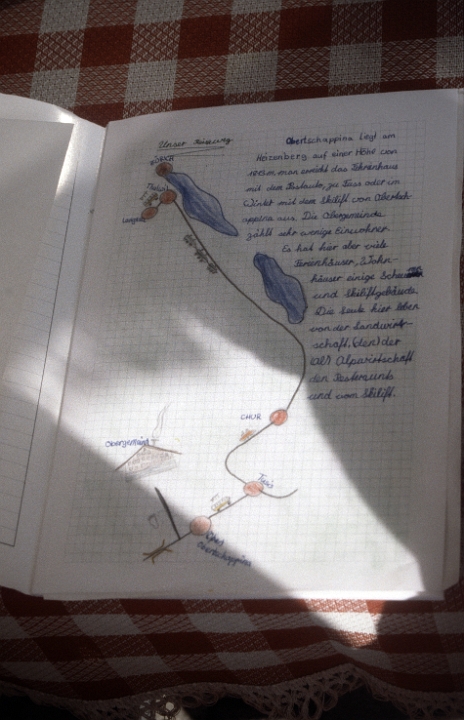 Unser Reiseweg.
ZÜRICH
Thalwil
Langnau
CHUR
Obergemeind
Obertschappina
Obertschappina liegt am
Heizenberg auf einer Höhe von
man erreicht das Ferienhaus
mit dem Postauto, zu Fuss oder im
Winter mit dem Skilift von Obertsch-
appina aus. Die Obergemeinde
zählt sehr wenige Einwohner
Es hat hier aber viele
Ferienhäuser, 3 Wohn-
häuser einige
und Skiliftgebäude.
Die Leute hier leben
von der Landwirt-
schaft, (den) der
Alpwirtschaft
den
und vom Skilift.